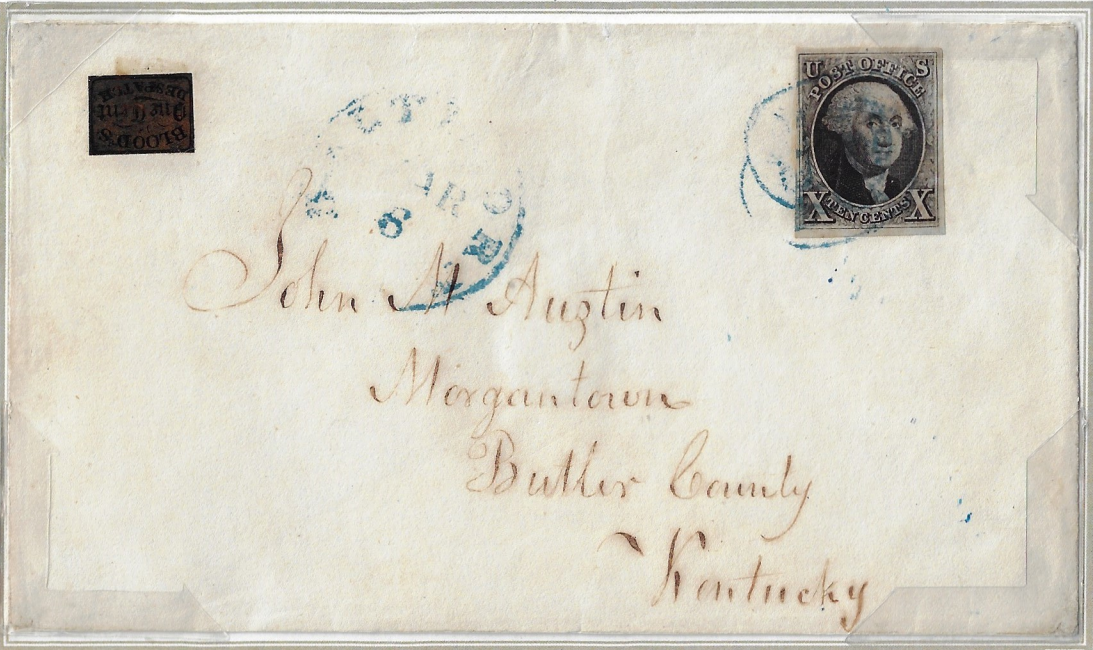 BLOOD'S
One Cent
DESPATCH
U S
POST OFFICE
X TEN CENTS X
8
John M Austin
Morgantown
Butler County
Kentucky